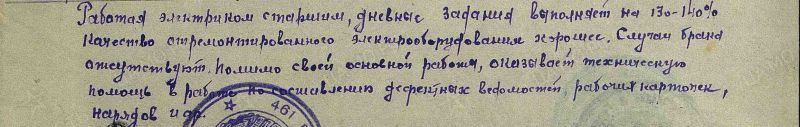 Работая электриком старшим, дневные задания выполняет на 130-140%
Качество отремонтированного электрооборудования хорошее. Случаи брака
отсутствуют. Помимо своей основной работы, оказывает техническую
помощь в работе по составлению дефектных ведомостей, рабочих карточек,
нарядов и др.
461